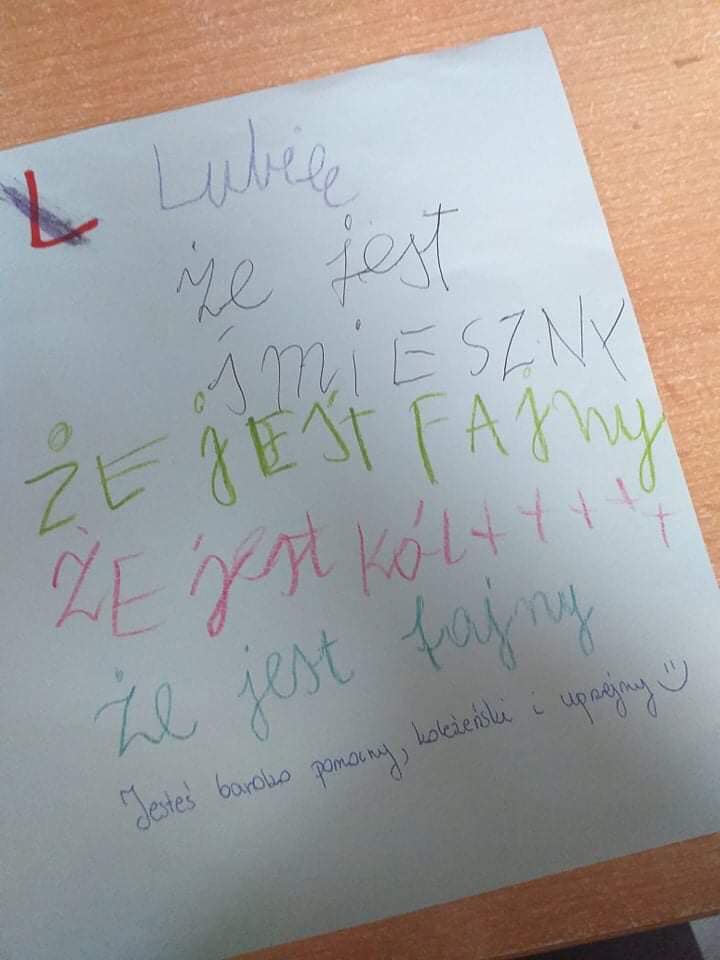 L Lubię
że jest
śMiESZNY
ŻE jEST FAjny
ŻE jest KÓL+++++
że jest fajny
Jesteś bardzo pomocny, koleżeński i uprzejmy :)